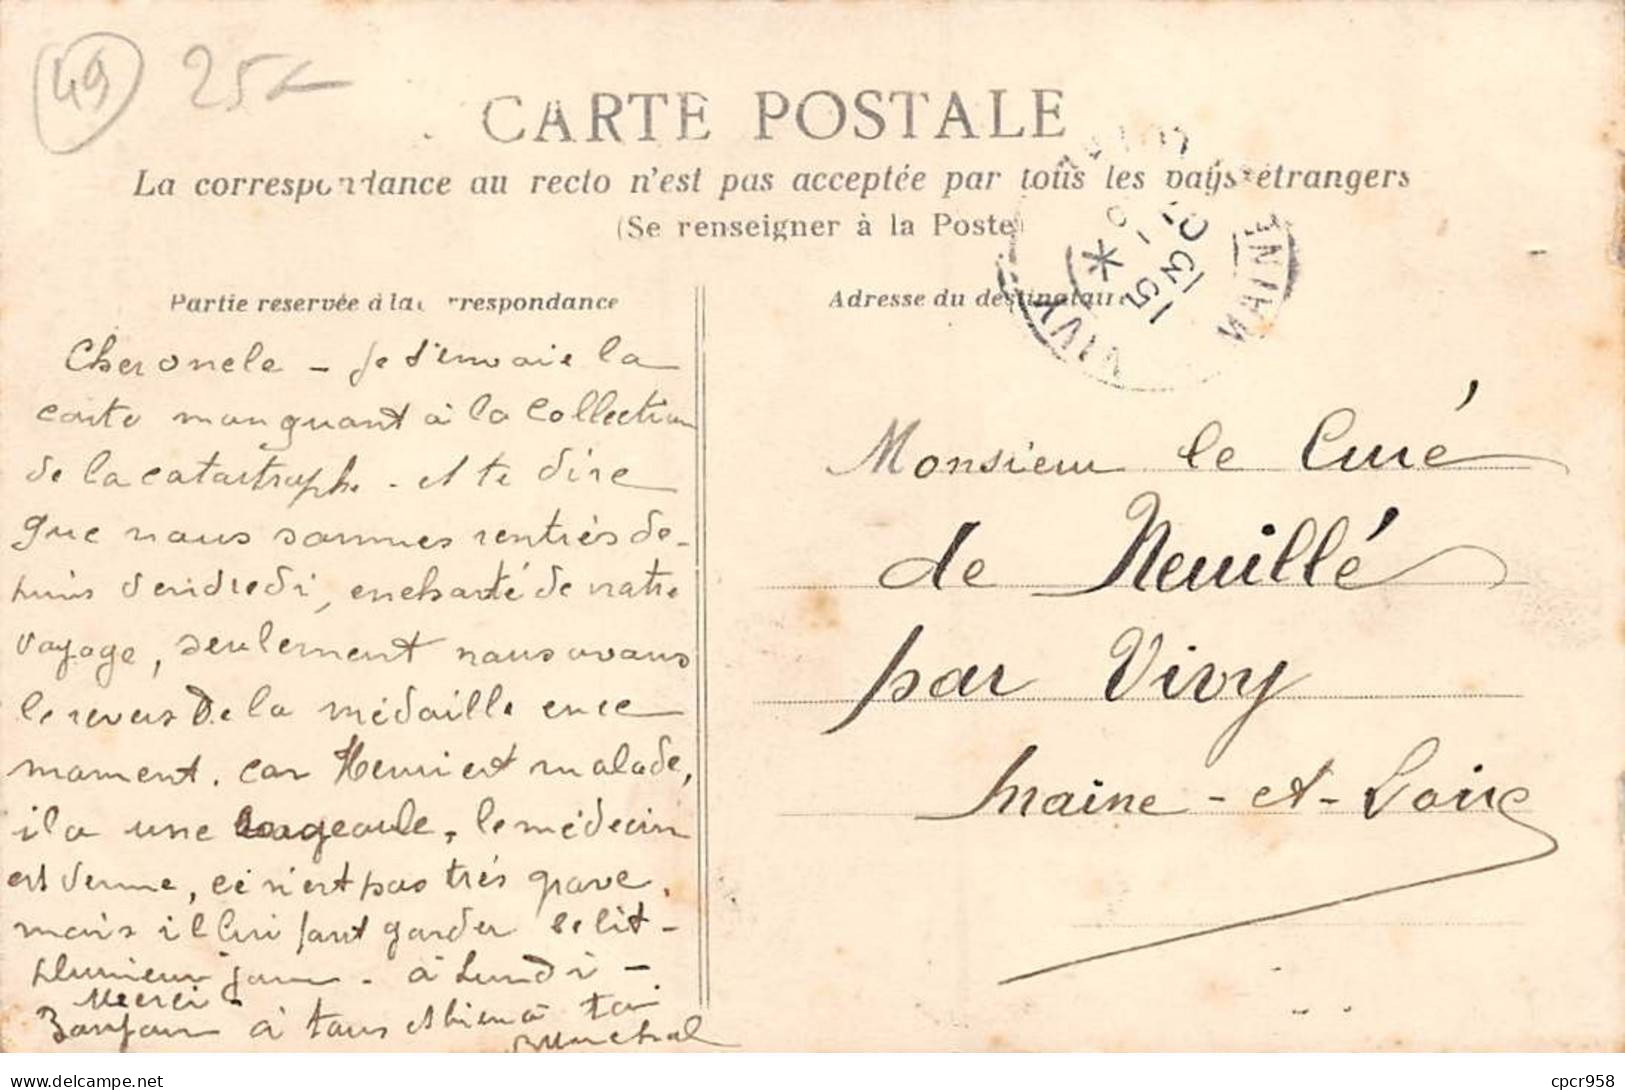 49 25
CARTE POSTALE
La correspondance au recto n'est pas acceptée par tous les pays étrangers
(Se renseigner à la Poste)
Partie reservée à la correspondance
Adresse du destinataire
VIVY
MAINE
Cher oncle - je t'envoie la
carte manquant à la collection
de la catastrophe. et te dire
que nous sommes rentrés de-
puis vendredi, enchanté de notre
voyage, seulement nous avons
le revers de la médaille en ce
moment. car Henri est malade,
il a une rougeole, le médecin
est venue, ce n'est pas très grave,
mais il lui faut garder le lit -
plusieurs jours. à Lundi -
Merci
Bonjour à tous et bien à toi
Monsieur le Curé
de Neuillé
par Vivy
Maine-et-Loire
delcampe.net
cpcr958